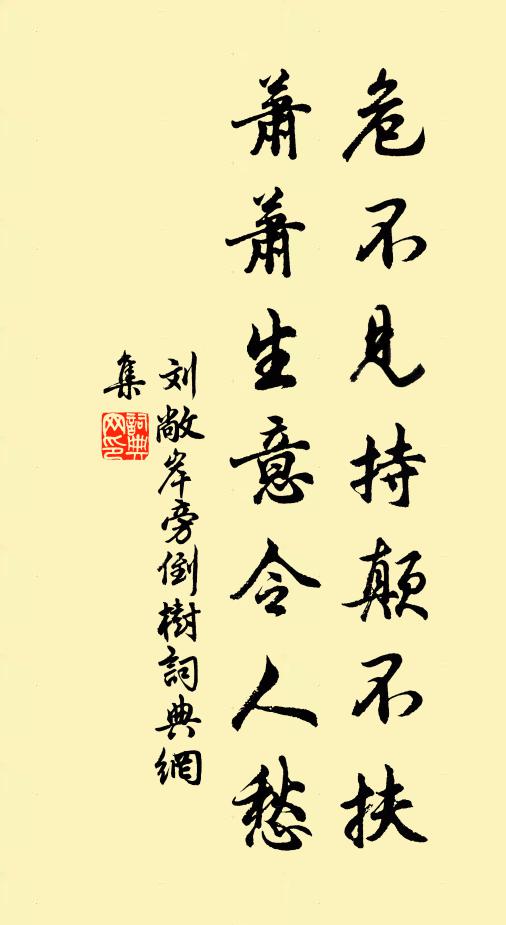 危不见持颠不扶
萧萧生意令人愁
刘敞岸旁倒樹詞典網
集
詞典
网印